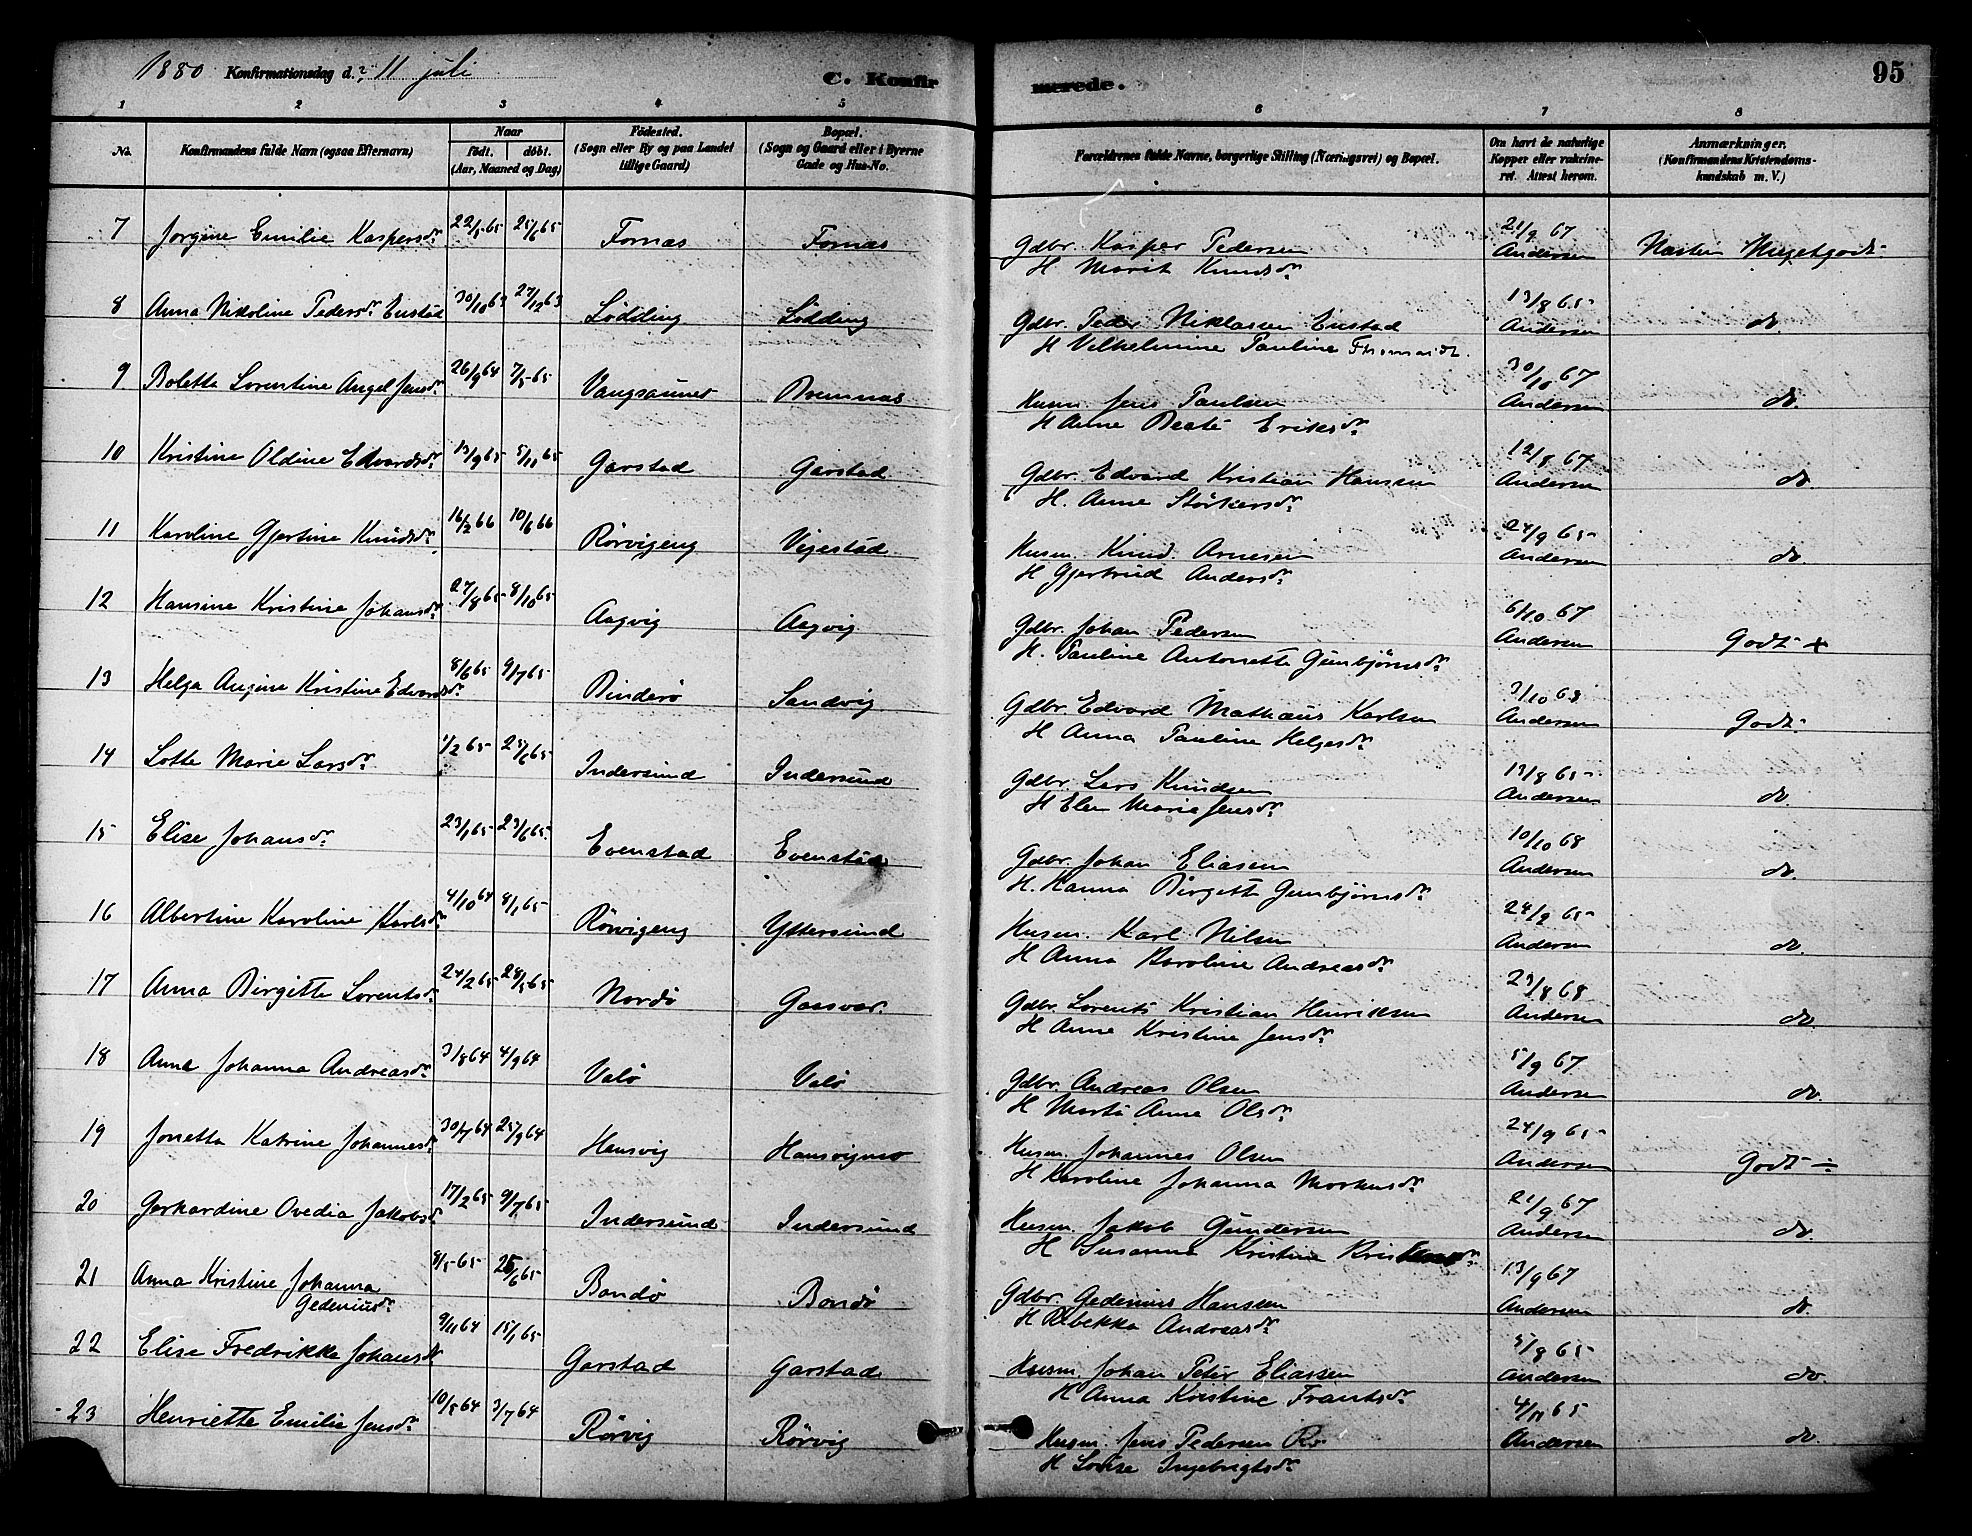 1880 Konfirmationsdag d. 11 juli
C. Konfirmerede.
95
1 2 3 4 5 6 7 8
No. Konfirmandens fulde Navn (ogsaa Efternavn) Naar født. døbt. (Aar, Maaned og Dag) Fødested. (Sogn eller By og paa Landet tillige Gaard) Bopæl. (Sogn og Gaard eller i Byerne Gade og Hus-No. Forældrenes fulde Navne, borgerlige Stilling (Næringsvei) og Bopæl. Om havt de naturlige Kopper eller vakcineret. Attest herom. Anmærkninger. (Konfirmandens Kristendomskundskab m. V.)
7 Jorgine Emilie Kaspersdr. 22/5 65 25/6 65 Fornæs Fornæs Gdbr. Kasper Pedersen 21/9 67 Andersen Næsten Megetgodt
H Marit Knudsdr.
8 Anna Nikoline Pedersdr. Enstad 30/10 63 27/12 63 Lødding Lødding Gdbr. Peder Niklassen Enstad 13/8 65 Andersen do.
H Vilhelmine Pauline
9 Boletta Lorentine Angel Jensdr. 26/9 64 7/5 65 Vangsaunet Bremnæs Husm. Jens Paulsen 30/10 67 Andersen do.
H Anne Beate Eriksdr.
10 Kristine Oldine Edvardsdr. 13/9 65 5/11 65 Garstad Garstad Gdbr. Edvard Kristian Hansen 12/8 67 Andersen do.
H. Anne Størkersdr.
11 Karoline Gjertine Knudsdr. 16/2 66 10/6 66 Rørvigeng Vejestad Husm. Knud Arnesen 24/9 65 Andersen do.
H Gjertrud Andersdr.
12 Hansine Kristine Johansdr. 27/8 65 8/10 65 Aagvig Aagvig Gdbr. Johan Pedersen 6/10 67 Andersen Godt +
H. Pauline Antonette Gunbjørnsdr.
13 Helga Angine Kristine Edvardsdr. 8/6 65 9/7 65 Binderø Sandvig Gdbr. Edvard Mathæus Karlsen 3/10 68 Andersen Godt
H Anna Pauline Helgesdr.
14 Lotte Marie Larsdr. 1/2 65 25/6 65 Indersund Indersund Gdbr. Lars Knudsen 13/8 65 Andersen do.
H Elen Marie Jensdr.
15 Elise Johansdr. 23/1 65 23/6 65 Evenstad Evenstad Gdbr. Johan Eliasen 10/10 68 Andersen do.
H. Hanna Birgette Gunbjørnsdr.
16 Albertine Karoline Karlsdr. 4/10 64 8/1 65 Rørvigeng Yttersund Husm. Karl Nilsen 24/9 65 Andersen do.
H Anna Karoline Andreasdr.
17 Anna Birgitte Lorentsdr. 24/2 65 28/5 65 Nordø Gaasvær Gdbr. Lorents Kristian Henriksen 23/8 68 Andersen do.
H Anne Kristine Jensdr.
18 Anna Johanna Andreasdr. 3/8 64 4/9 64 Valø Valø Gdbr. Andreas Olsen 5/9 67 Andersen do.
H Marta Anna Olsdr.
19 Jonetta Katrine Johannesdr. 30/7 64 25/9 64 Hansvig Hansvignes Husm. Johannes Olsen 24/9 65 Andersen Godt ÷
H Karoline Johanna Markusdr.
20 Gerhardine Ovedia Jakobsdr. 17/2 65 9/7 65 Indersund Indersund Husm. Jakob Gundersen 21/9 67 Andersen do.
H Susanna Kristine
21 Anna Kristine Johanna Gedeniusdr. 8/5 65 25/6 65 Bondø Bondø Gdbr. Gedenius Hansen 13/9 67 Andersen do.
H Rebekka Andreasdr.
22 Elise Fredrikke Johansdr 9/11 64 15/1 65 Garstad Garstad Husm. Johan Peter Eliassen 5/8 65 Andersen do.
H Anna Kristine Frantsdr.
23 Henriette Emilie Jensdr. 10/5 64 3/7 64 Rørvig Rørvig Husm. Jens Pedersen Rø 4/11 65 Andersen do.
H Lovise Ingebrigtsdr.